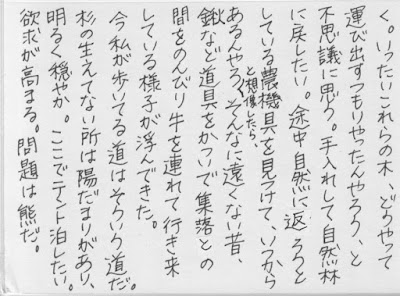 く。いったいこれらの木、どうやって
運び出すつもりやったんやろう、と
不思議に思う。手入れして自然林
に戻したい。途中自然に返ろうと
している農機具を見つけて、いつから
と想像したら、
あるんやろ、そんなに遠くない昔、
鍬など道具をかついで集落との
間をのんびり牛を連れて行き来
している様子が浮んできた。
今私が歩いてる道はそういう道だ。
杉の生えてない所は陽だまりがあり、
明るく穏やか。ここでテント泊したい。
欲求が高まる。問題は熊だ。